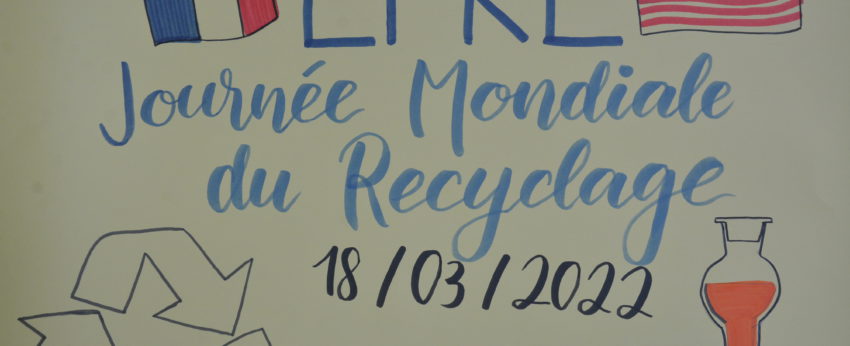 Journée Mondiale
du Recyclage
18/03/2022